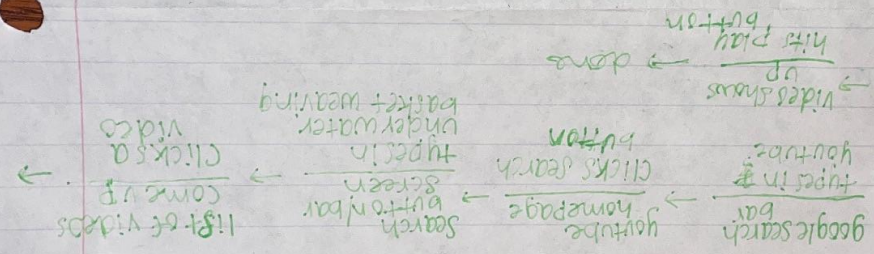 google search
bar
types in
youtube
→
youtube
homepage
clicks search
button
→
search
button/bar
screen
types in
underwater
basket weaving
→
list of videos
come up
clicks a
video
→
→ video shows
up
hits play
button
→ done